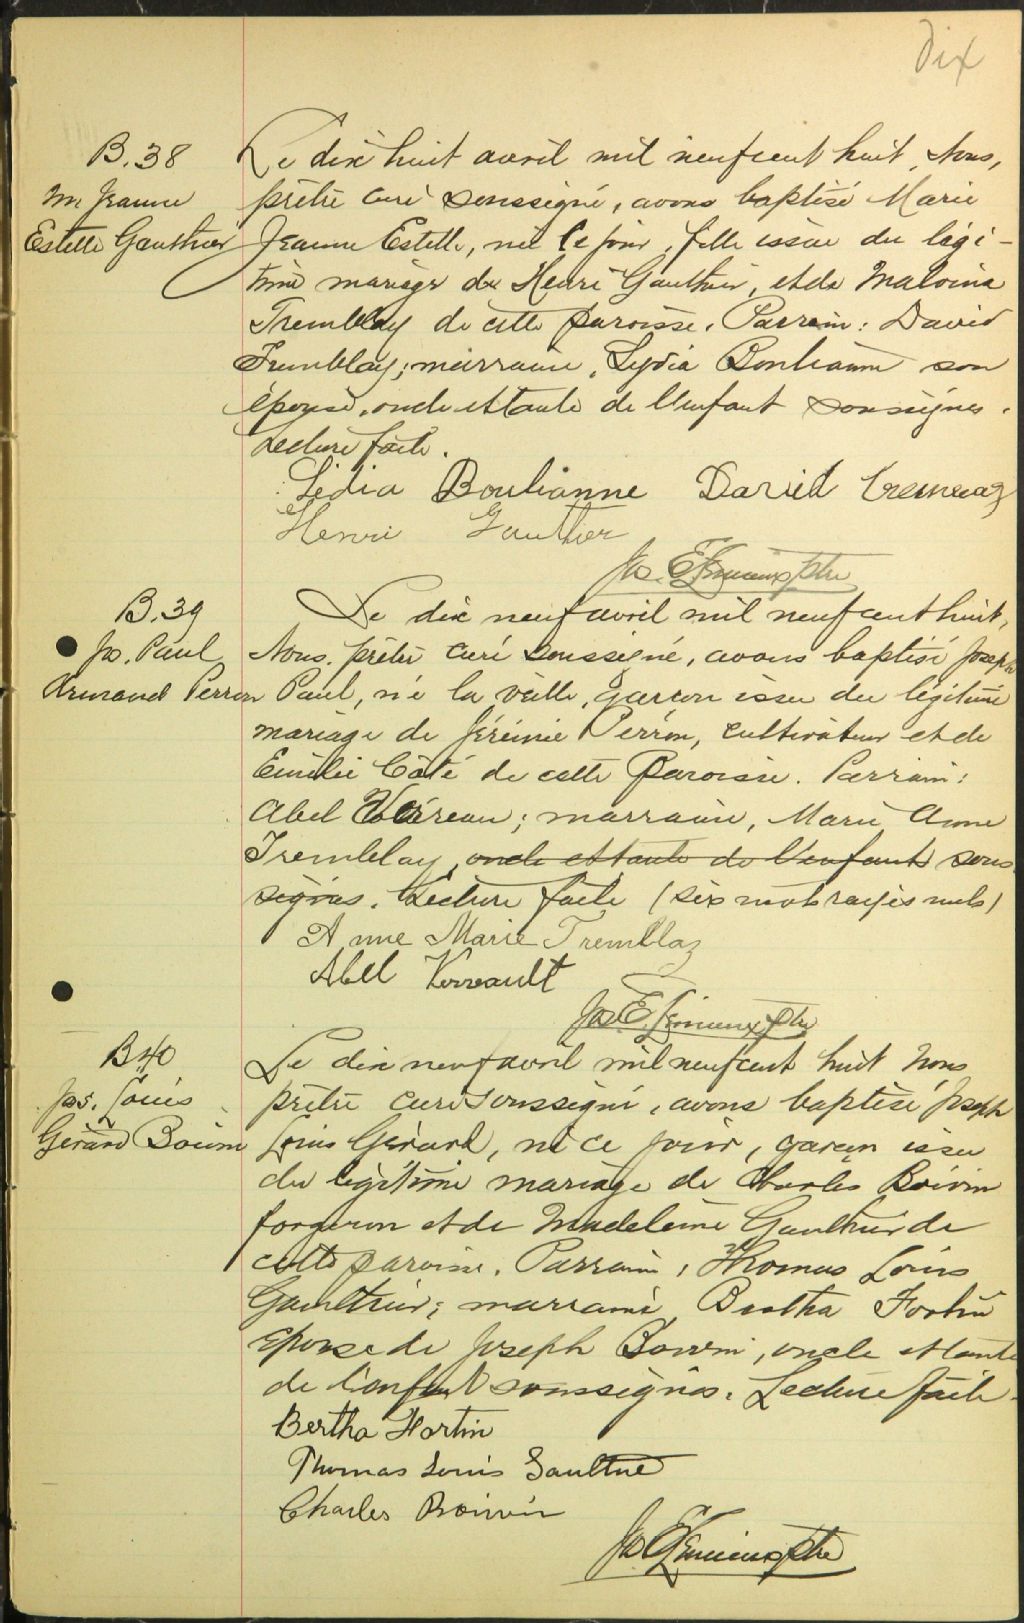 Dix
B. 38
M. Jeanne
Estelle Gauthier
Le dix huit avril mil neuf cent huit, Nous,
prêtre curé soussigné, avons baptisé Marie
Jeanne Estelle, née le jour, fille issue du légi-
time mariage de Henri Gauthier, et de Malvina
Tremblay de cette paroisse. Parrain: David
Tremblay; marraine, Lydia Boulianne son
épouse, oncle et tante de l'enfant soussignés.
Lecture faite.
Lidia Boulianne David Tremblay
Henri Gauthier
Jos. E. Lemieux ptre
B. 39
Jos. Paul
Armand Perron
Le dix neuf avril mil neuf cent huit,
Nous, prêtre curé soussigné, avons baptisé Joseph
Paul, né la veille, garçon issu du légitime
mariage de Jérémie Perron, cultivateur et de
Emilie Côté de cette paroisse. Parrain:
Abel Verreau; marraine, Marie Anne
Tremblay, oncle et tante de l'enfant sous
signés. Lecture faite (six mots rayés nuls)
Anne Marie Tremblay
Abel Verreault
Jos. E. Lemieux ptre
B 40
Jos. Louis
Gérard Boivin
Le dix neuf avril mil neuf cent huit Nous
prêtre curé soussigné, avons baptisé Joseph
Louis Gérard, né ce jour, garçon issu
du légitime mariage de Charles Boivin
forgeron et de Madeleine Gauthier de
cette paroisse. Parrain, Thomas Louis
Gaulthier; marraine Bertha Fortin
épouse de Joseph Boivin, oncle et tante
de l'enfant soussignés. Lecture faite.
Bertha Fortin
Thomas Louis Gaulthie
Charles Boivin
Jos E Lemieux ptre